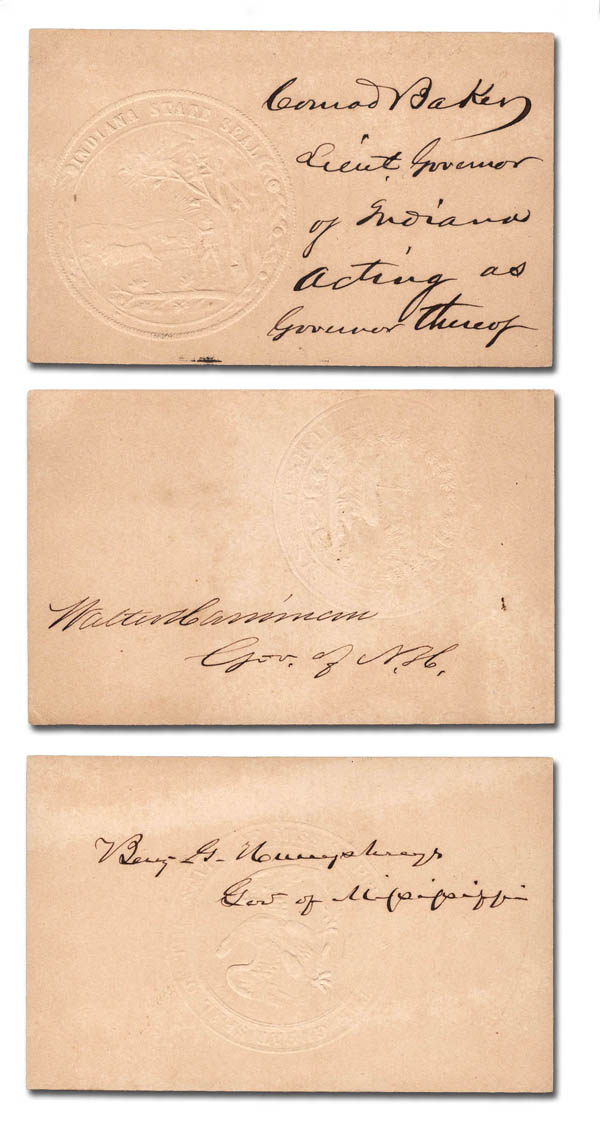 INDIANA STATE SEAL
Conrad Baker
Lieut Governor
of Indiana
Acting as
Governor thereof
Walter Harriman
Gov. of N.H.
Benj G. Humphreys
Gov of Mississippi